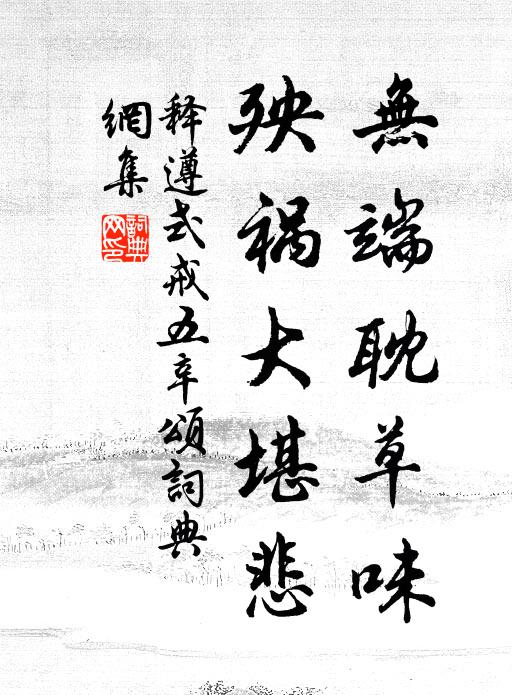 無端耽草味
殃祸大堪悲
释遵式戒五辛頌詞典
網集
詞典
网印